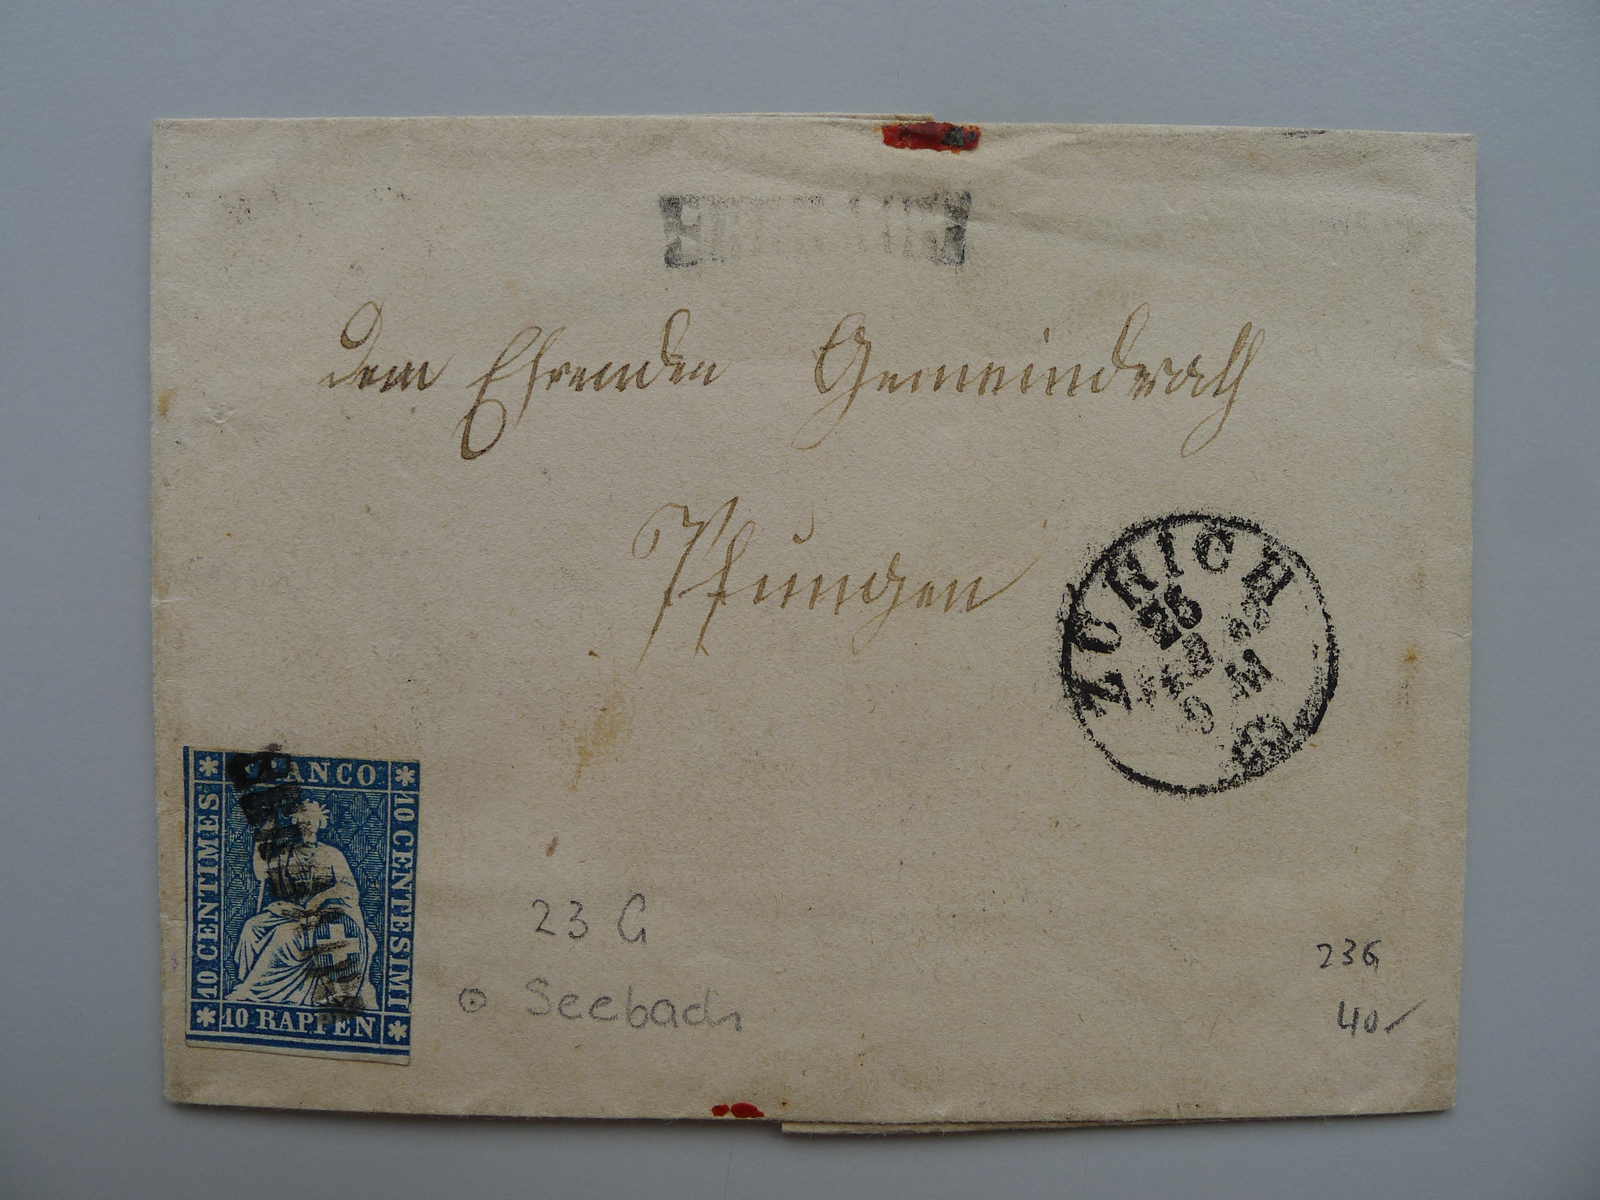 dem Ehrenden Gemeindrath
Pfungen
ZÜRICH
26
FEB
9 M
FRANCO
10 CENTIMES
10 CENTESIMI
10 RAPPEN
23 G
Seebach
23G
40.-